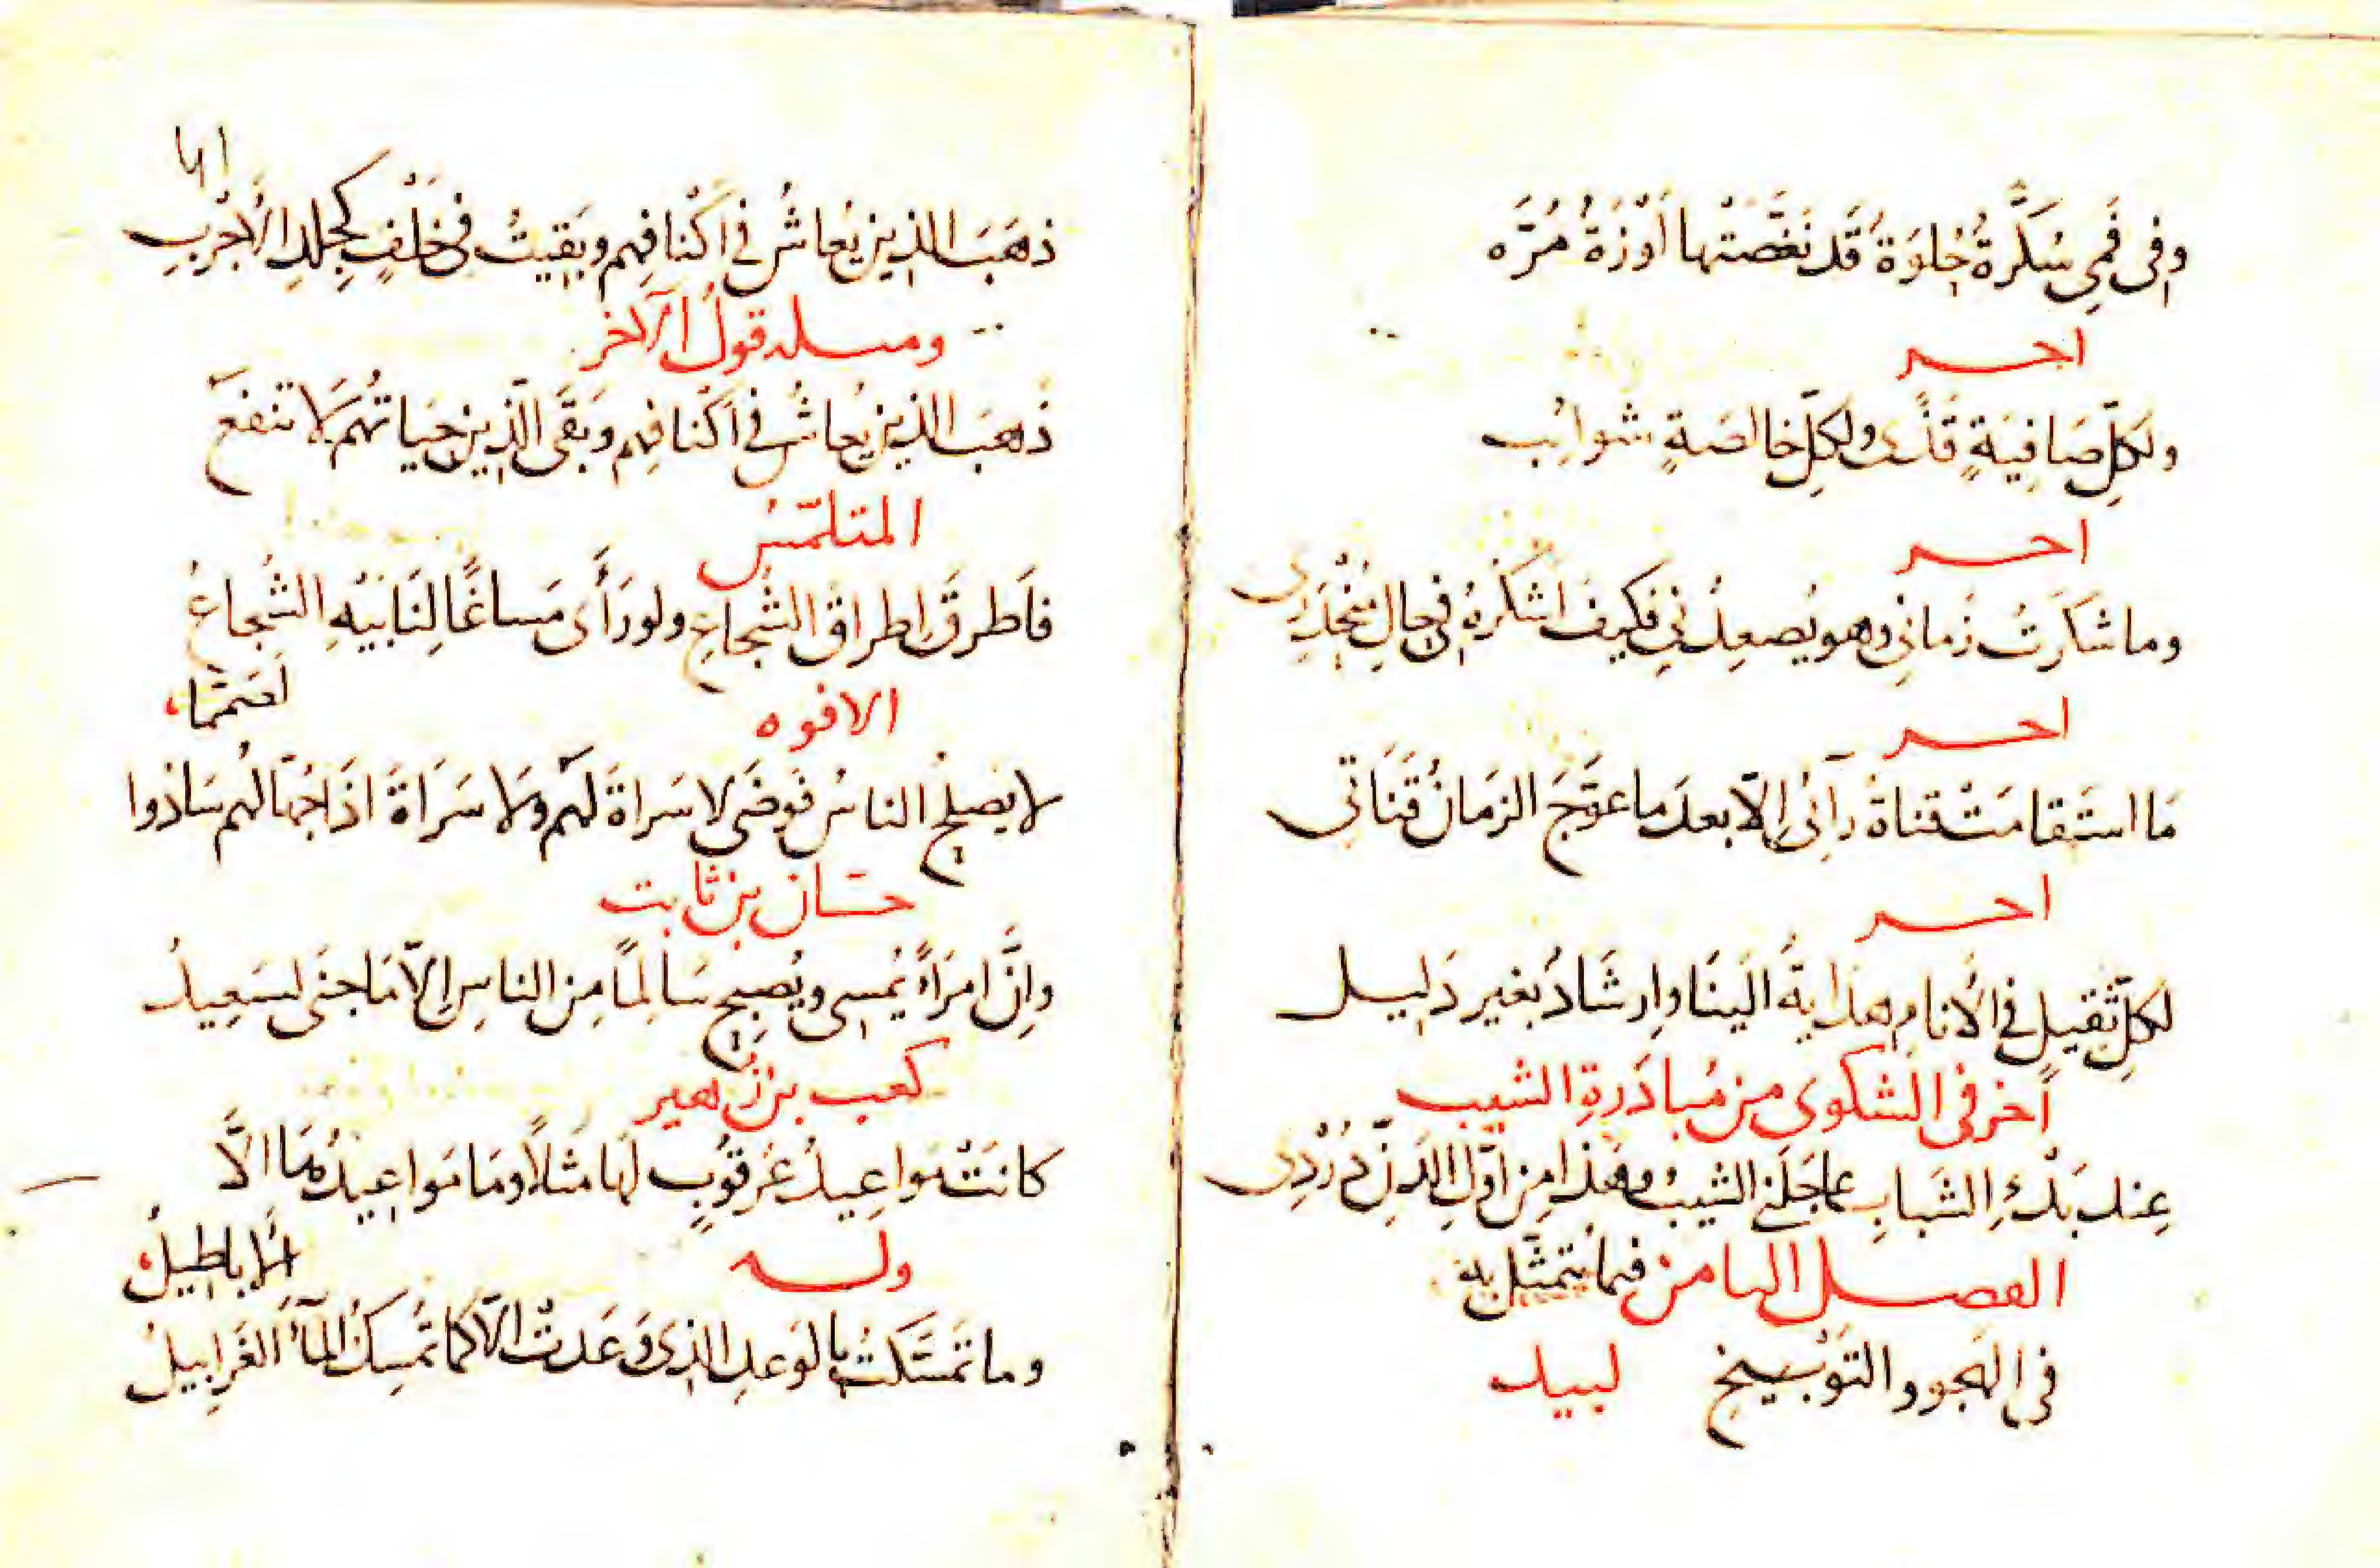 وفى فَمِى سُكَّرةٌ حُلوَةٌ قَد نَغَّصَتْها أَوْزَةٌ مُرَّه
اخر
ولكِلِّ صَافِيَةٍ قَذًى ولكِلِّ خالصَةٍ شوائِب
اخر
وما شَكَرتُ زَمانِى وهو يُصعِدُنِى فكَيفَ اشكُرُهُ فى حالِ مُنْحَدَرِى
اخر
مَا استَقامَتْ قناةُ رأئِى إلّا بعدَ ما عوَّجَ الزمَانُ قَنَاتى
اخر
لكِلِّ ثَقيلٍ فى الأَنامِ هدَايةٌ الَينَا وارِشَادٌ بغَيرِ دَلِيل
آخر فى الشكوى من مُبادَرةِ الشيب
عِندَ بَدْءِ الشَبابِ عاجَلَنى الشيبُ وهَذا مِن أوّلِ الدَنِّ دُرْدِى
الفصل الثامن فيما يُتمثّل به
فى الهَجو والتَوْبيخ لبيد
٦١
ذهَبَ الذين يُعاشُ فى اكْنافِهم وبَقيتُ فى خَلْفٍ كجِلدِ الأَجْرَبِ
ومثله قولُ الآخر
ذهَبَ الذين يُعاشُ فى أكنافِهم وبَقَى الّذين حَياتُهُم لا تنفعُ
المتلمّسُ
فأَطرقَ اطراقَ الشُجاعِ ولو رَأَى مَساغًا لِنَابَيْهِ الشُجاعُ
لصَمَّمَا
الافوه
لا يصلحُ الناسُ فوضَى لا سَراةَ لَهُم ولا سَرَاةَ اذَا جُهّالُهم سَادُوا
حسّان بن ثابت
وإنَّ امرَأً يُمسِى ويُصبِحُ سَالِمًا مِن الناسِ إلّا مَا جنَى لسَعِيدُ
كعب بن زُهير
كانَتْ مَواعِيدُ عُرقُوبٍ لهَا مَثلاً ومَا مَواعِيدُهَا الَّا
الأَباطِيلُ
وله
وما تَمَسَّكَتْ بالوَعدِ الذى وَعَدتْ الّا كما تُمسِكُ المآءَ الغَرابِيلُ